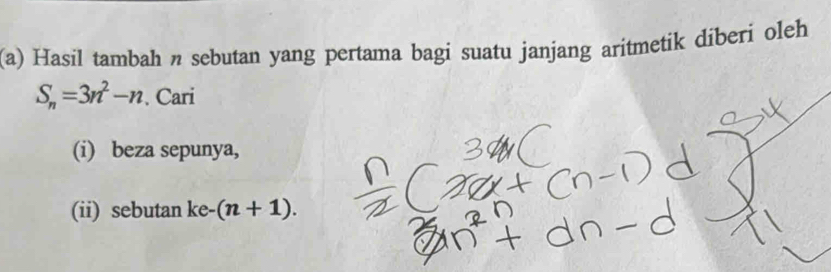 (a) Hasil tambah n sebutan yang pertama bagi suatu janjang aritmetik diberi oleh
Sₙ = 3n² − n. Cari
(i) beza sepunya,
(ii) sebutan ke-(n + 1).
n/2 ( + (n-1)d
n² + dn - d